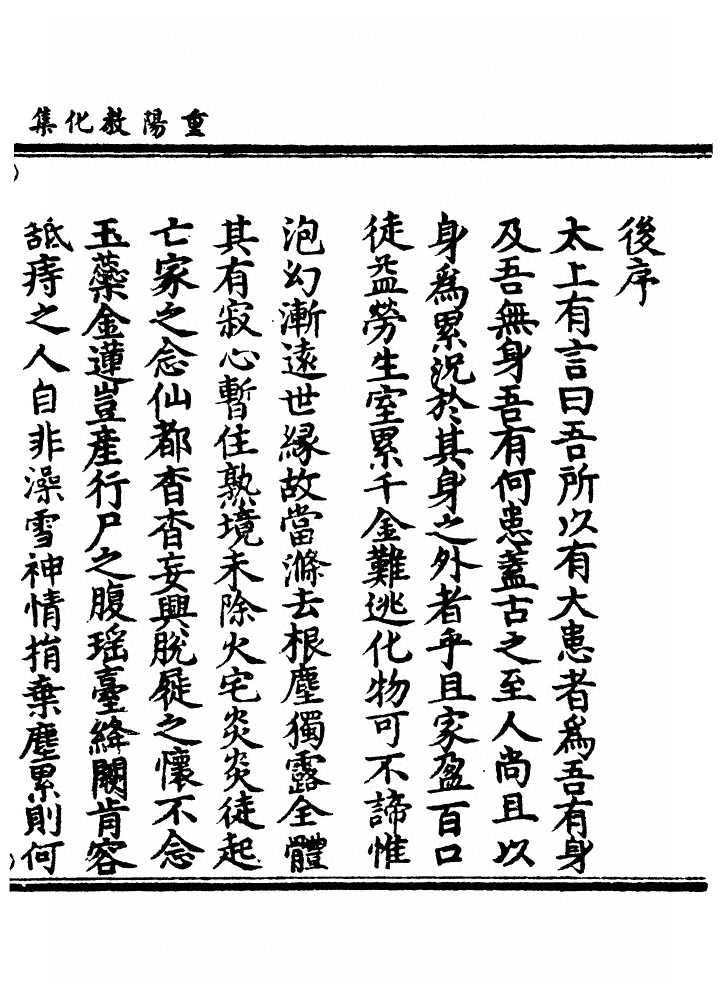 重陽教化集
後序
太上有言曰吾所以有大患者為吾有身
及吾無身吾有何患蓋古之至人尚且以
身為累況於其身之外者乎且家盈百口
徒益勞生室累千金難逃化物可不諦惟
泡幻漸遠世緣故當滌去根塵獨露全體
其有寂心暫住熟境未除火宅炎炎徒起
亡家之念仙都杳杳妄興脫屣之懷不念
玉蘂金蓮豈産行尸之腹瑶臺絳闕肯容
舐痔之人自非澡雪神情捐棄塵累則何